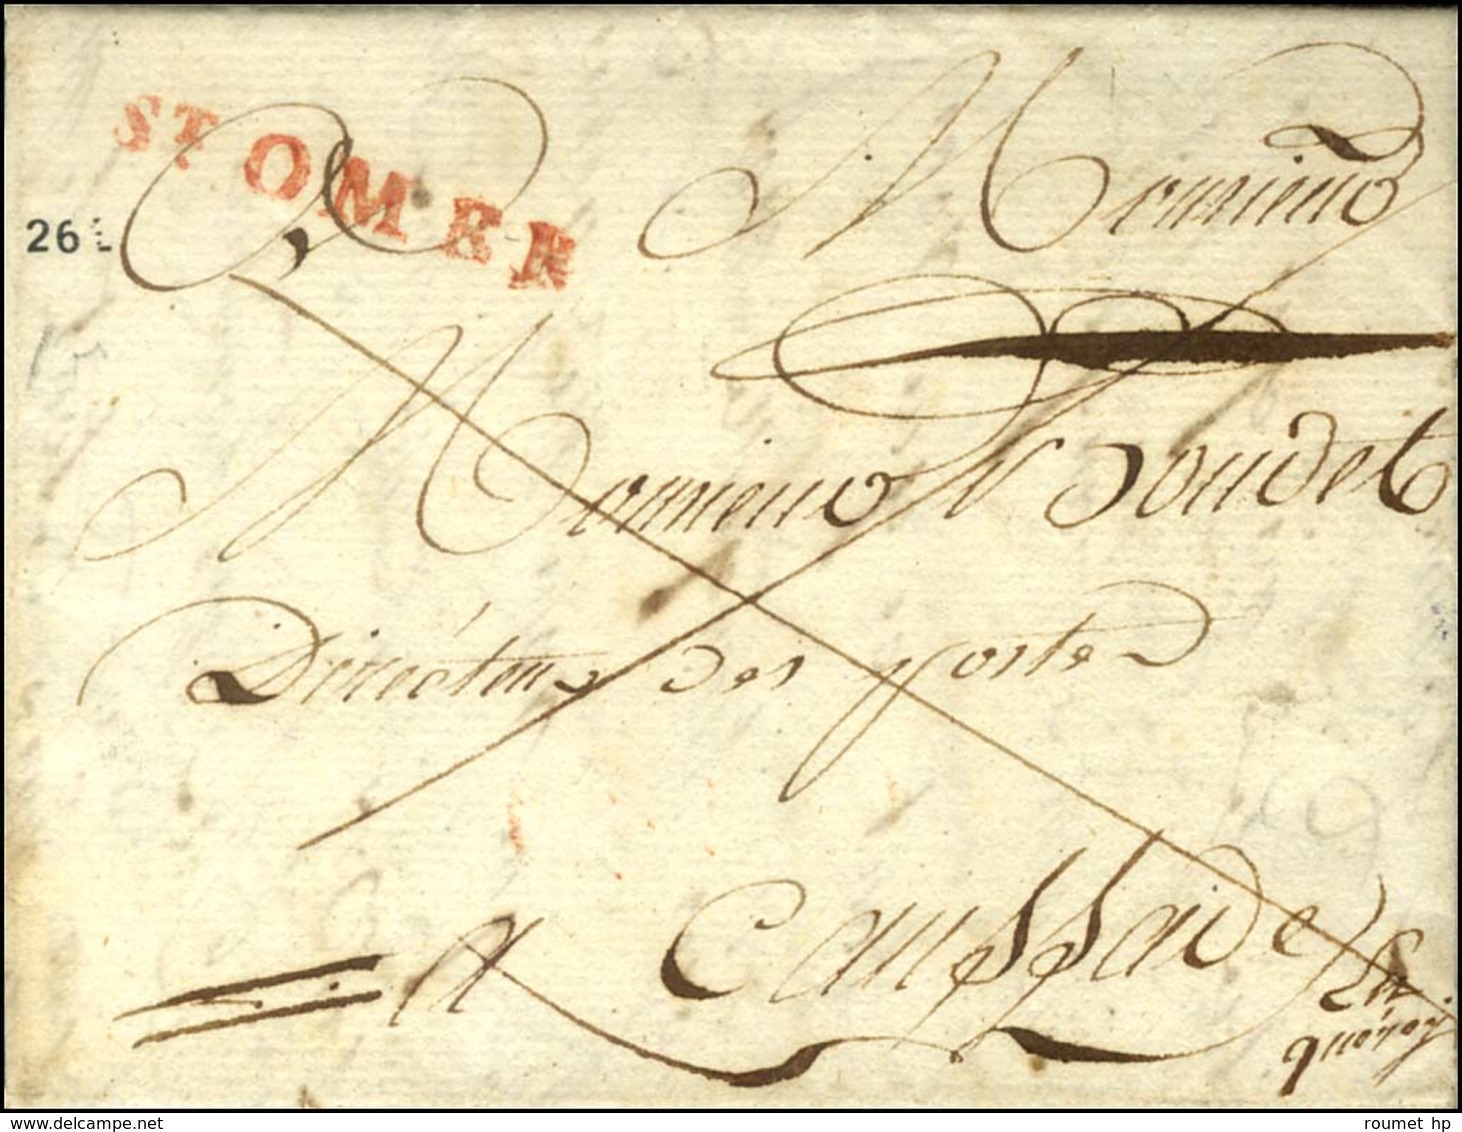 ST OMER
26
15
Monsieur
Monsieur Boudet
Directeur des postes
a Caussade
En
quercy
roumet hp